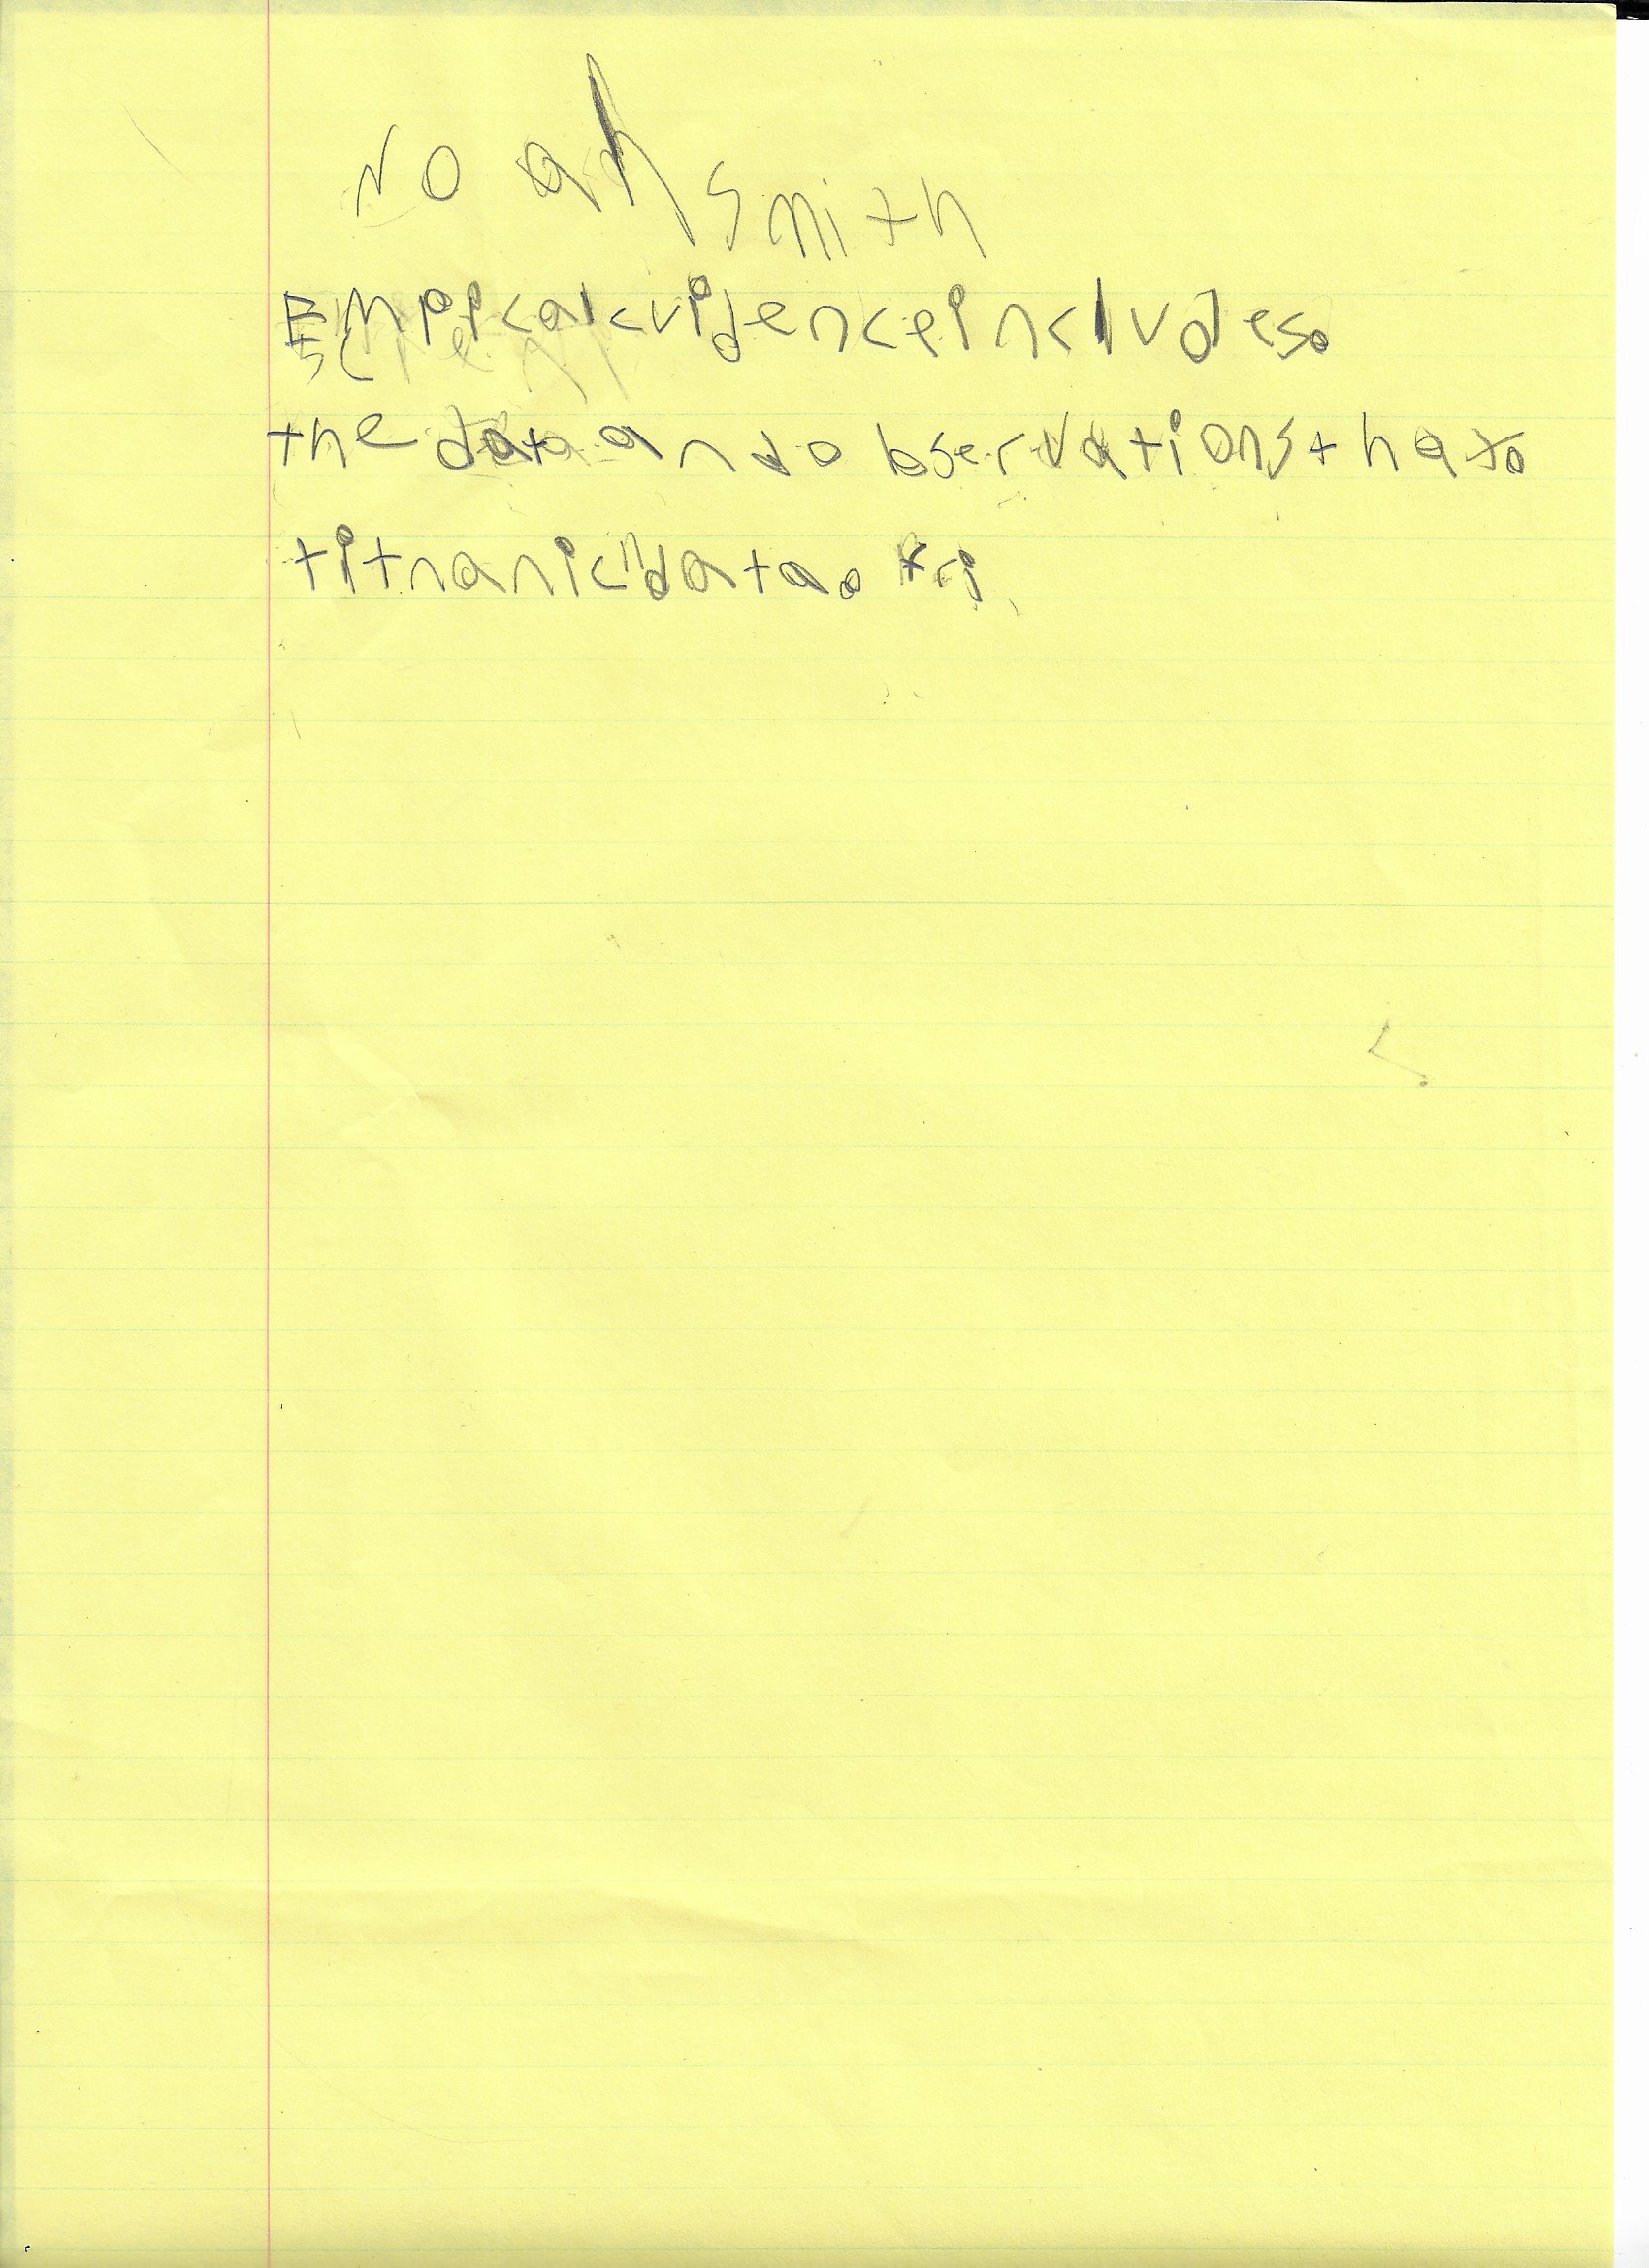 Noah Smith
Empicalcvidenceincludes.
the data and observations that.
titnanicdata.